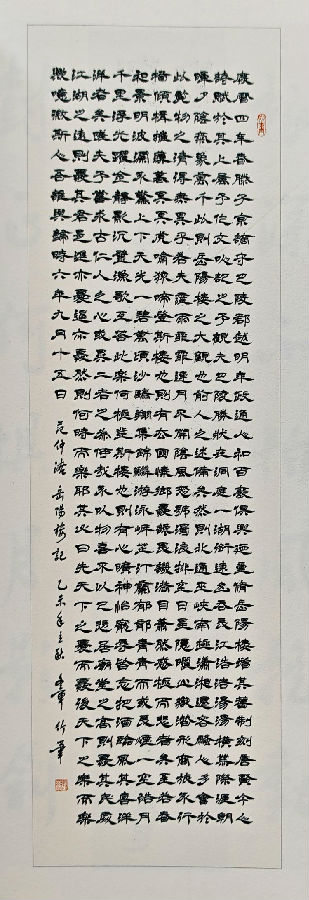 慶曆四年春滕子京謫守巴陵郡越明年政通人和百廢俱興乃重修岳陽樓增其舊制刻唐賢今人
詩賦於其上屬予作文以記之予觀夫巴陵勝狀在洞庭一湖銜遠山吞長江浩浩湯湯橫無際涯朝
暉夕陰氣象萬千此則岳陽樓之大觀也前人之述備矣然則北通巫峽南極瀟湘遷客騷人多會於
此覽物之情得無異乎若夫霪雨霏霏連月不開陰風怒號濁浪排空日星隱曜山岳潛形商旅不行
檣傾楫摧薄暮冥冥虎嘯猿啼登斯樓也則有去國懷鄉憂讒畏譏滿目蕭然感極而悲者矣至若春
和景明波瀾不驚上下天光一碧萬頃沙鷗翔集錦鱗游泳岸芷汀蘭郁郁青青而或長煙一空皓月
千里浮光躍金靜影沉璧漁歌互答此樂何極登斯樓也則有心曠神怡寵辱皆忘把酒臨風其喜洋
洋者矣嗟夫予嘗求古仁人之心或異二者之為何哉不以物喜不以己悲居廟堂之高則憂其民處
江湖之遠則憂其君是進亦憂退亦憂然則何時而樂耶其必曰先天下之憂而憂後天下之樂而樂
歟噫微斯人吾誰與歸時六年九月十五日 范仲淹 岳陽樓記 乙未年立秋 竹筆